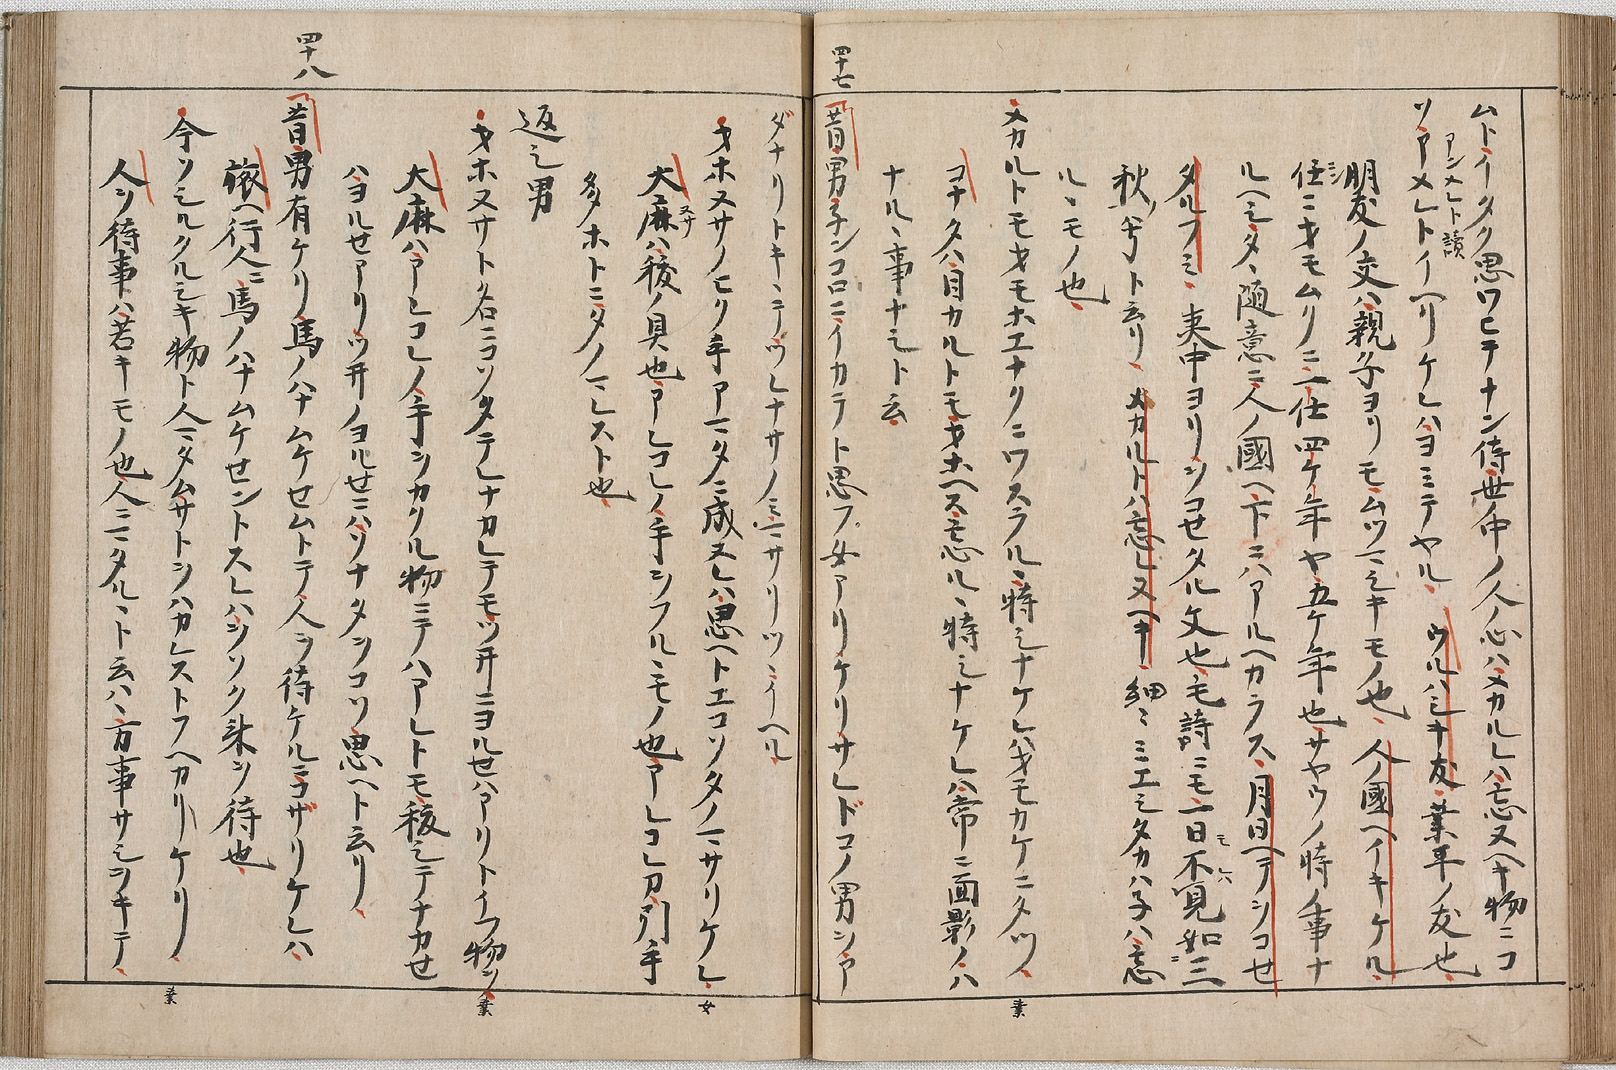 ムトイタク思ワヒテナン侍世ノ中ノ人ノ心ハメカルレハ忘ヌヘキ物ニコ
アンメレト讀
ソアメレトイヘリケレハヨミテヤル ウルハシキ友 業平ノ友也
朋友ノ交ハ親子ヨリモムツマシキモノ也 人國ヘイキケル
任ニオモムクニ一任四ケ年ヤ五ケ年也サヤウノ時ノ事ナ
ルヘシタヽ随意ニ人ノ國ヘ下ニハアルヘカラス 月日ヘテヲコセ
タルフミ 奏中ヨリヲコセタル文也毛詩ニモ一日不見如三
秋兮ト云リ メカルトハ忘レヌヘキ 細〻ミエシタカハ子ハ忘
ルヽモノ也
メカルトモオモホエナクニワスラルヽ時シナケレハオモカケニタツ
業
コナタハ目カルトモオホヘス忘ルヽ時シナケレハ常ニ面影ノハ
ナルヽ事ナシト云
四十七
昔男子ンコロニイカテト思フ女アリケリサレドコノ男ヲア
ダナリトキヽテツレナサノミマサリツヽイヘル
オホヌサノヒク手アマタニ成ヌレハ思ヘトエコソタノマサリケレ
女
大麻ハ祓ノ具也アレコレノ手ヲフルヽモノ也アレコレ引手
ヌサ
多ホトニタノマレスト也
返シ男
オホヌサト名ニコソタテレナカレテモツ井ニヨルセハアリトイフ物ヲ
業
大麻ハアレコレノ手ヲカクル物ニテハアレトモ祓シテナカせ
ハヨルせアリツ井ノヨルせニハソナタヲコソ思ヘト云リ
四十八
昔男有ケリ馬ノハナムケせムトテ人ヲ待ケルニコザリケレハ
旅ヘ行人ニ馬ノハナムケせントスレハヲソク来ヲ待也
今ソシルクルシキ物ト人マタムサトヲハカレストフヘカリケリ
業
人ヲ待事ハ苦キモノ也人ニマタルヽト云ハ万事サシヲキテ